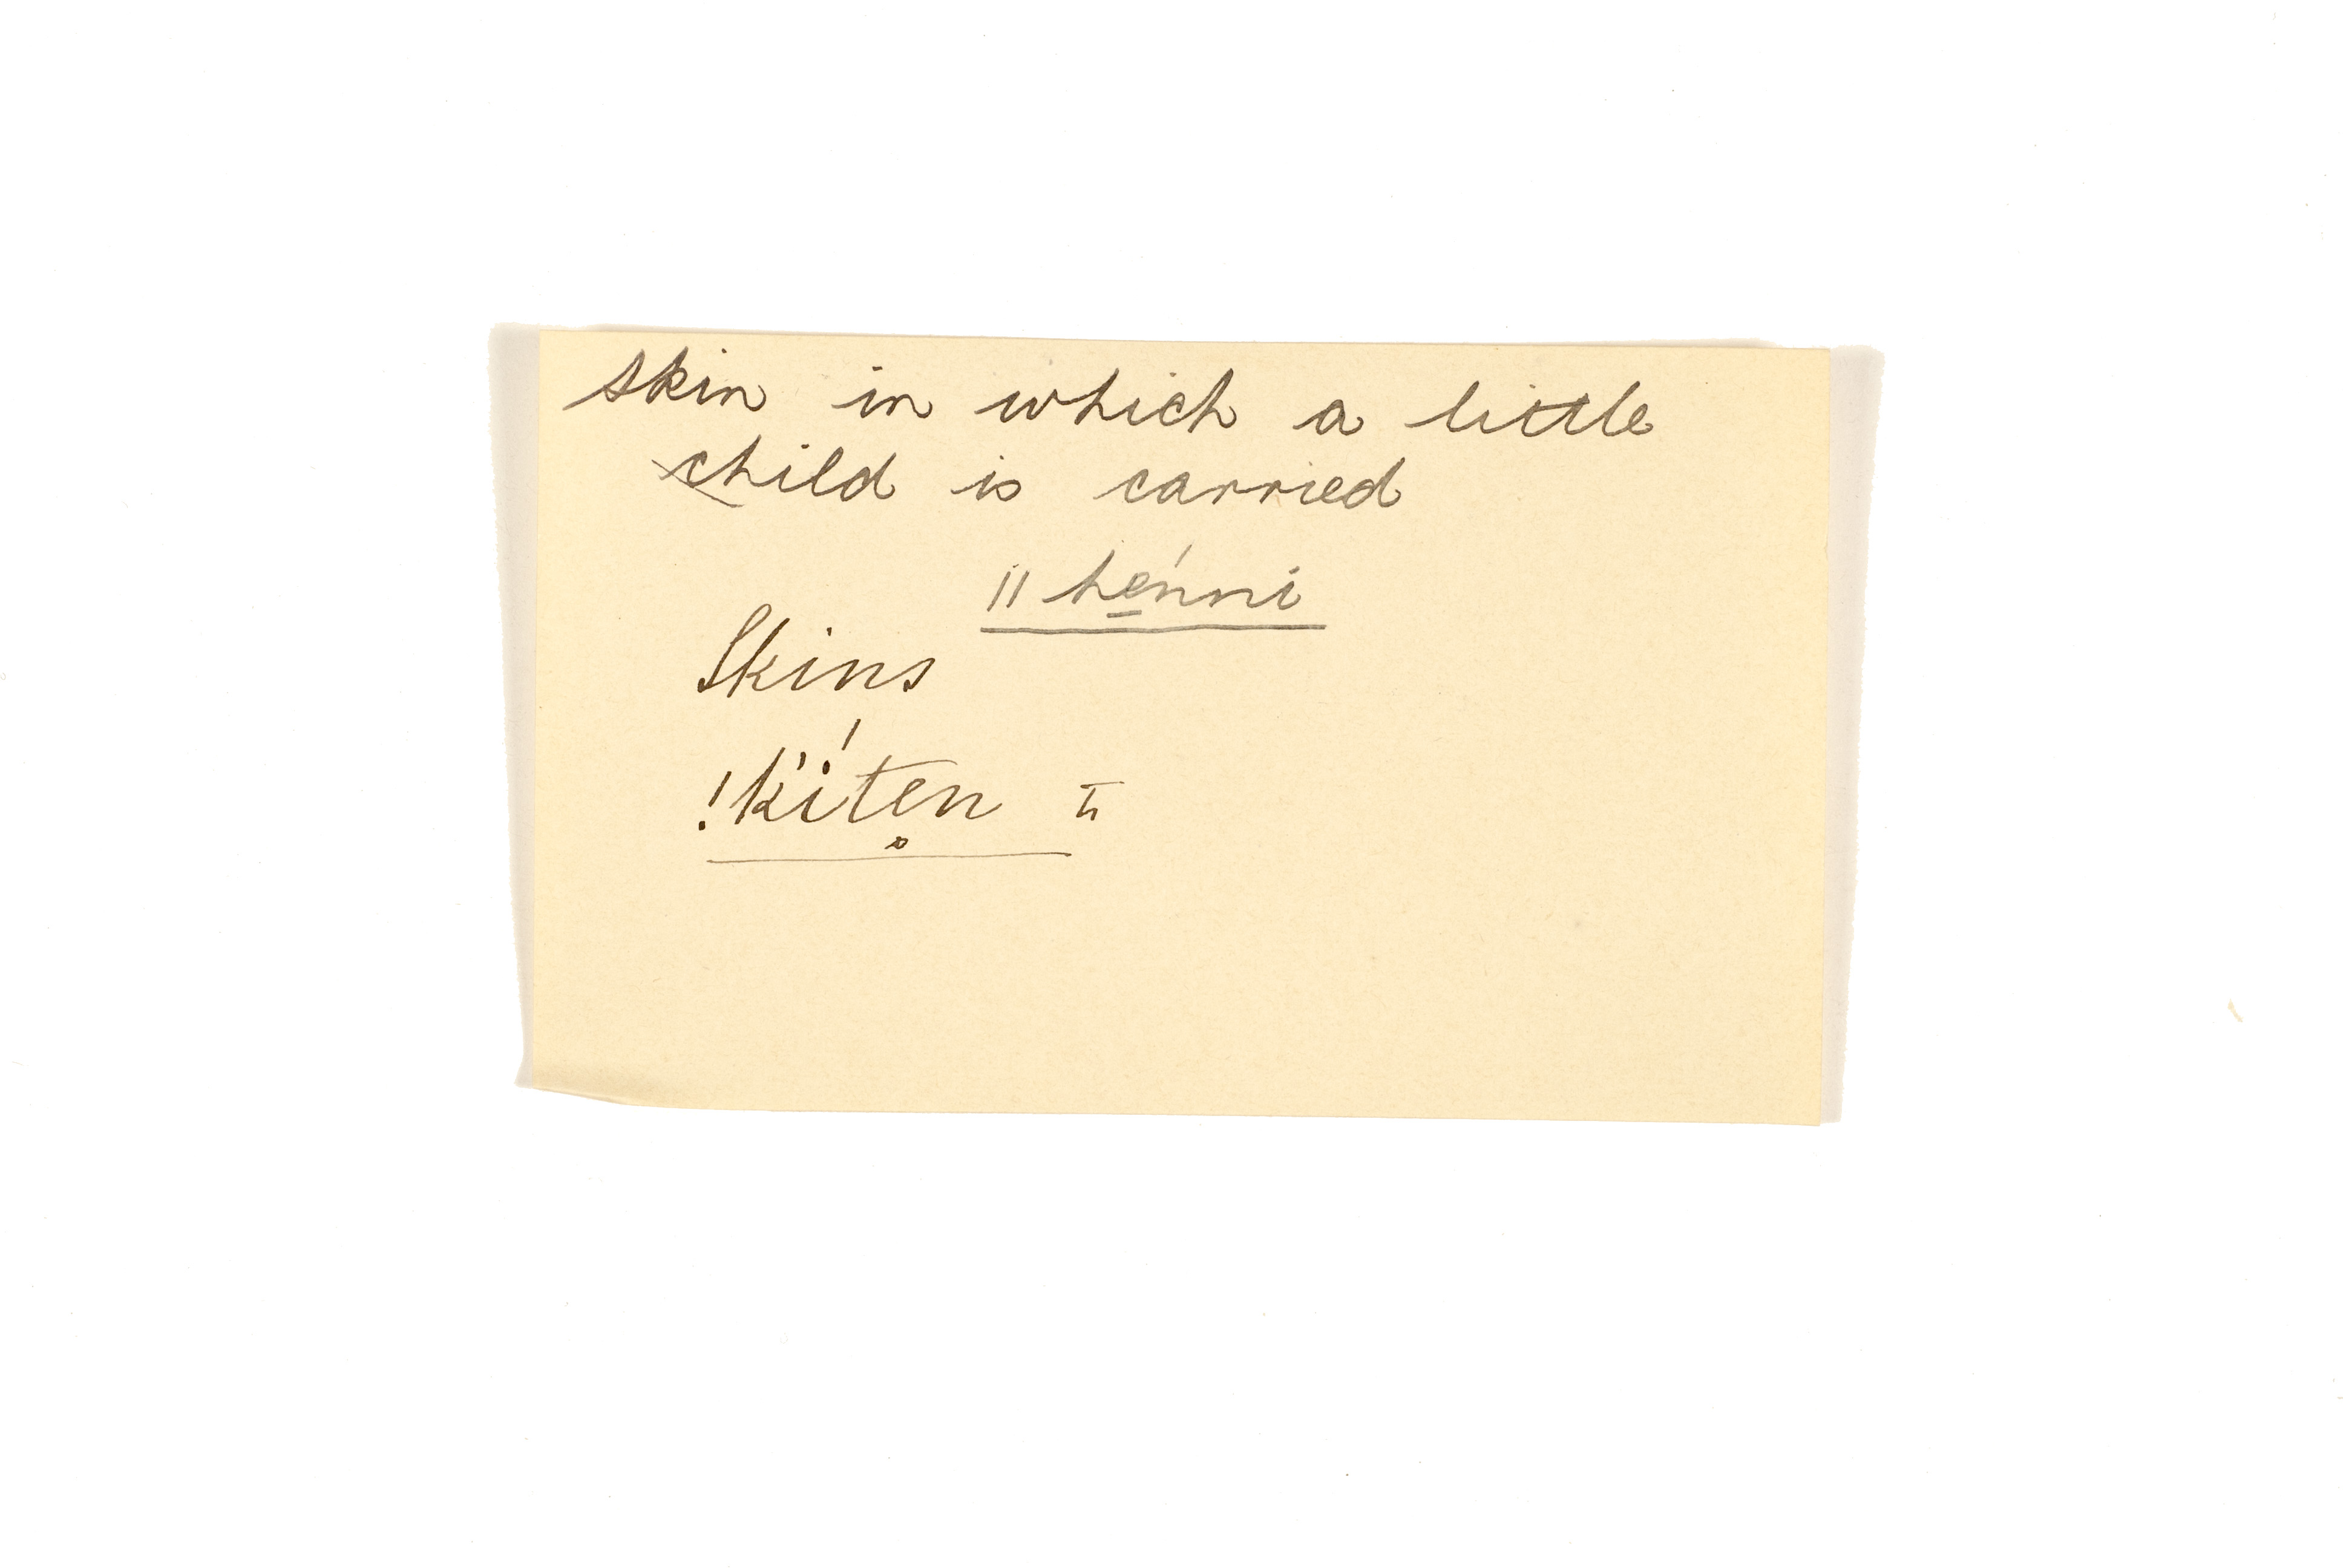 skin in which a little
child is carried
ǁhe̱ńni
Skins
!k̓íten̥ II